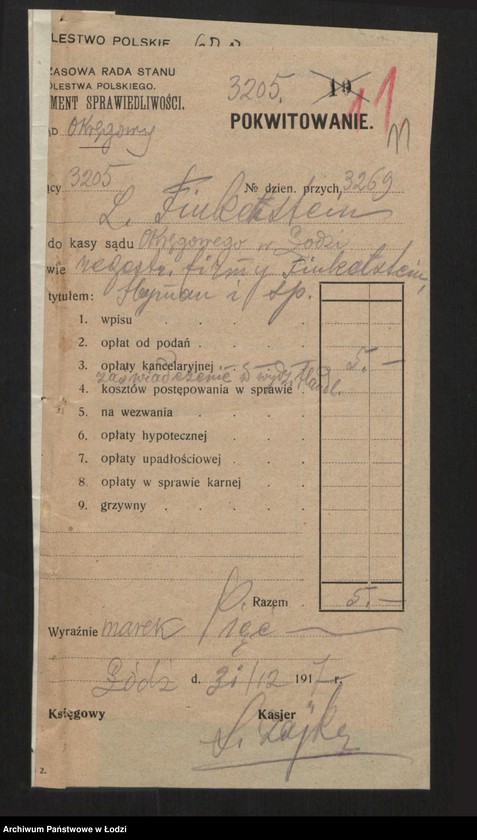 LESTWO POLSKIE
ZASOWA RADA STANU
ÓLESTWA POLSKIEGO.
MENT SPRAWIEDLIWOŚCI.
3205.
10
11
POKWITOWANIE.
AD Okręgowy
ący 3205
№ dzien. przych. 3269
L. Finkelstein
do kasy sądu Okręgowego w Łodzi
wie rejestr. firmy Finkelstein,
tytułem: Hyman i sp.
1. wpisu
2. opłat od podań
3. opłaty kancelaryjnej 5.—
zaświadczenie w wydz. Handl.
4. kosztów postępowania w sprawie
5. na wezwania
6. opłaty hypotecznej
7. opłaty upadłościowej
8. opłaty w sprawie karnej
9. grzywny
Razem 5.—
Wyraźnie marek Pięć
Łódź d. 31/12 1917 r.
Księgowy Kasjer
2.
Archiwum Państwowe w Łodzi